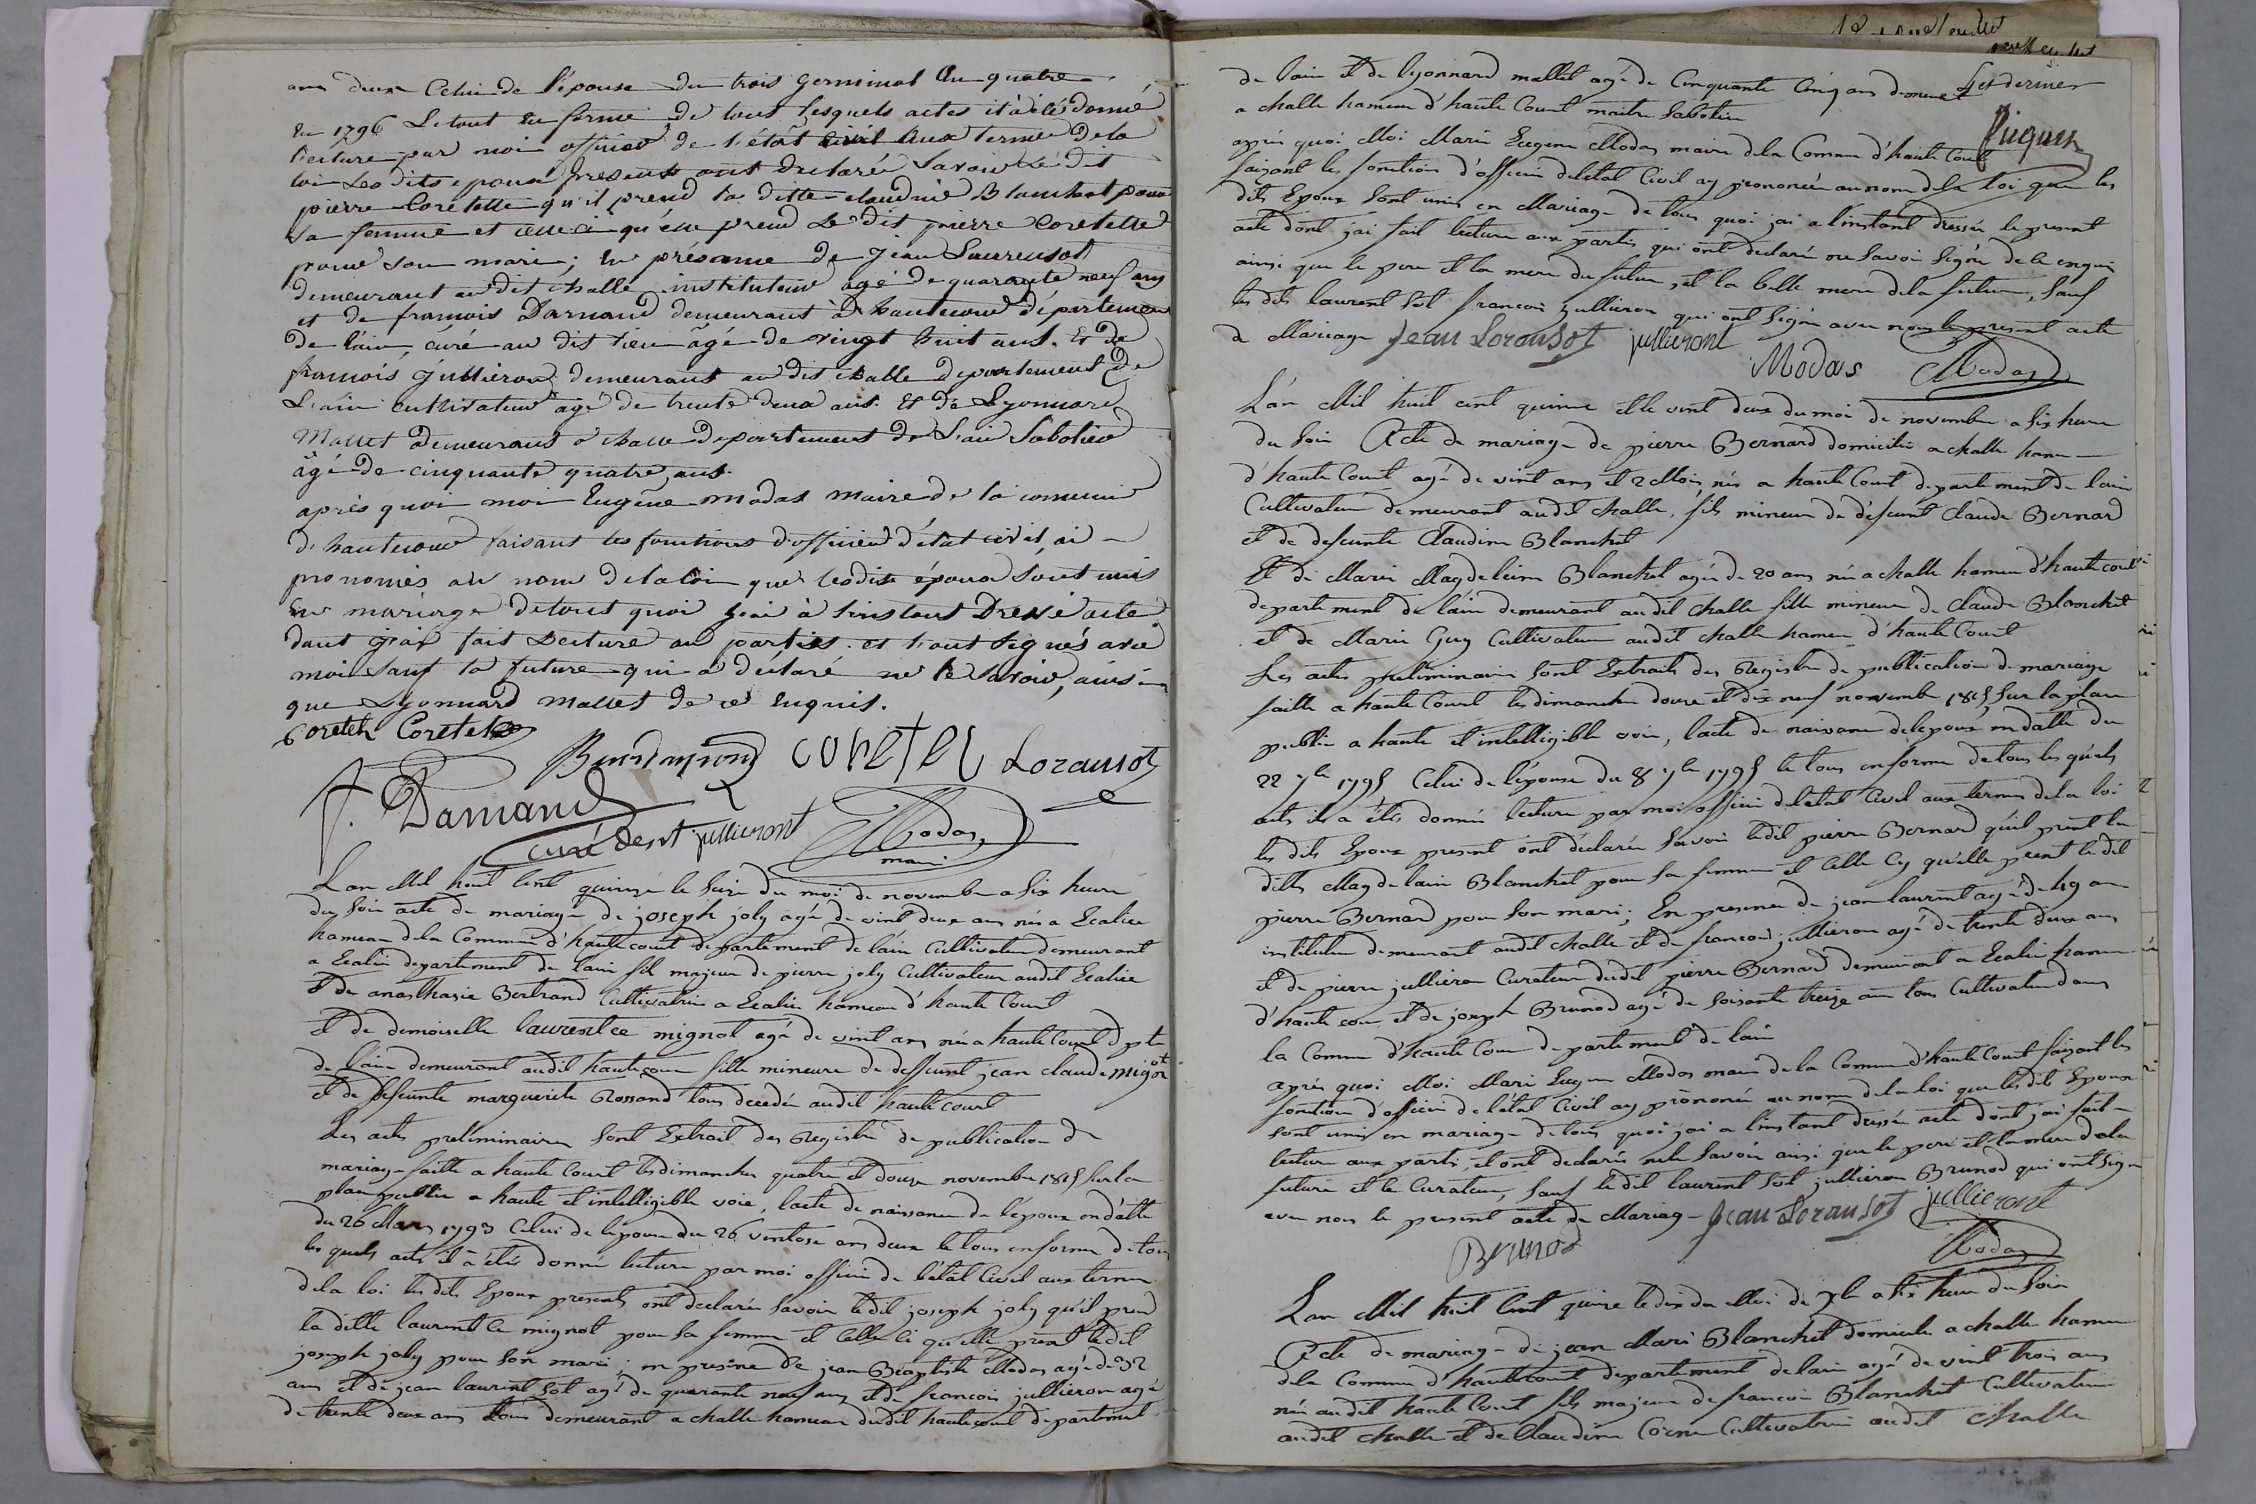 ans deux Celui de l'épouse du trois germinal An quatre
En 1796 Le tout En forme de tous lesquels actes il à été donné
lecture par moi officier de l'état civil Aux termes de la
loi Les dits epoux presents ont declaré savoir Le dit
pierre Coretette qu'il prend la ditte claudine Blanchet pour
sa femme et celle ci qu'elle prend Le dit pierre Coretette
pour son mari; En présence de Jean Laurensot
demeurant au dit challe instituteur agé de quarante neuf ans
et de francois Darnand demeurant à hautecour département
de l'ain, curé au dit lieu âgé de vingt huit ans. Et de
francois Gullieron demeurant au dit challe departement de
L'ain cultivateur agé de trente deux ans. Et de Lyonnard
Mallet Demeurant à challe departement de L'ain Sabotier
âgé de cinquante quatre ans.
après quoi moi Eugène modas Maire de la commune
d'hautecour faisant les fonctions d'officier d'état civil, ai
prononcés au nom de la loi que lesdits époux sont unis
En mariage de tout quoi j'ai à l'instant Dressé acte
dont j'ai fait Lecture au parties. et l'ont signés avec
moi sauf la future qui a déclaré ne le savoir, ainsi
que Lyonnard Mallet de ce Enquis.
Coretet Coretet
CORETET Loransot
f. Darnand
curé dess.t jullieront Modas
maire
L'an Mil huit Cent quinze le seize du moi de novembre a six heure
du soir acte de mariage de joseph joly agé de vint deux ans né a Ecalice
hameau de la Commune d'hautecourt departement de l'ain Cultivateur demeurant
a Ecalice departement de l'ain fil majeur de pierre joly Cultivateur audit Ecalice
et de anasthasie Bertrand Cultivatrice a Ecalice hameau d'haute Court
et de demoiselle laurentce mignot agé de vint ans née a haute Court dpt
de l'ain demeurant audit hautecour fille mineure de deffeunt jean claude mignot
et de deffeunte marguerite Rossand tous decedés audit haute court
Les actes preliminaires sont Extrait des Registre de publication de
mariage faitte a haute Court les dimanches quatre et douze novembre 1815 sur la
place public a haute et intelligible voie, lacte de naissance de l'époux en datte
du 26 Mars 1793 Celui de l'épouse du 26 ventose ans deux le tous en forme de tous
les quels acte il a étés donné lecture par moi officier de l'état Civil aux termes
de la loi les dits Epoux presents ont declarés savoir ledit joseph joly qu'il prend
la ditte laurentce mignot pour sa femme et Celle Ci qu'elle prent ledit
joseph joly pour son mari; en presence de jean Baptiste Modas agé de 32
ans et de jean laurent sot agé de quarante neuf ans et de francois jullieron agé
de trente deux ans tous demeurant a challe hameau dudit hautecourt departement
de l'ain et de lyonnard mallet agé de Cinquante Cinq ans demeurant
a challe hameau d'haute Court maitre Sabotier
aprés quoi Moi Marie Eugene Modas maire de la Commune d'haute Court
faisant les fonction d'officier de letat Civil ay prononcée au nom de la loi que les
dits Epoux sont unis en Mariage de tous quoi jai a l'instant dressée le present
acte dont jai fait lecture aux partis qui ont declarée ne savoir signée de ce enquis
ainsi que le pere et la mere du futur, et la belle mere de la future, sauf
les dits laurent sot francois jullieron qui ont signée avec nous le present acte
de Mariage Jean Loransot jullieront
Modas Modas
Let dernier
L'an Mil huit cent quinze et le vint deux du moi de novembre a six heure
du soir Acte de mariage de pierre Bernard domicilié a challe hameau
d'haute Court agé de vint ans et 2 Mois né a haute Court departement de l'ain
Cultivateur demeurant audit challe, fils mineur de defeunt Claude Bernard
et de defeunte Claudine Blanchet
Et de Marie Magdeleine Blanchet agée de 20 ans née a challe hameau d'haute court
departement de l'ain demeurant audit challe fille mineure de Claude Blanchet
et de Marie Guy Cultivateur audit challe hameau d'haute Court
Les actes preliminaire sont Extraits des Registre de publication de mariage
faitte a haute Court les dimanches douze et dix neuf novembre 1815 sur la place
public a haute et intelligible voie, lacte de naissance de lepoux en datte du
22 7bre 1795 Celui de l'épouse du 8 7bre 1795 le tous en forme de tous les quels
acte il a étés donnée lecture par moi officier de létat Civil aux termes de la loi
les dits Epoux present ont déclarée savoir ledit pierre Bernard quil prent la
ditte Magdelaine Blanchet pour sa femme et Celle Cy qu'elle prent le dit
pierre Bernard pour son mari; En presence de jean laurent agé de 49 ans
instituteur demeurant audit challe et de francois jullieron agé de trente deux ans
et de pierre jullieron Curateur dudit pierre Bernard demeurant a Ecalice hameau
d'haute cour et de joseph Brunod agé de soisante treize ans tous Cultivateur dans
la Commune d'haute Cour departement de l'ain
aprés quoi Moi Marie Eugene Modas maire de la Commune d'haute Court faisant les
fonction d'officier de l'état Civil ay prononcée au nom de la loi que lesdit Epoux
sont unis en mariage de tous quoi jai a l'instant dressée acte dont jai fait
lecture aux partis, et ont declarés ne le savoir ainsi que le pere et la mere de la
future et le Curateur, sauf le dit laurent sot jullieron Brunod qui ont signé
avec nous le present acte de Mariage Jean Loransot jullieront
Brunod Modas
L'an Mil huit Cent quinze le dix du Moi de xbre a six heure du soir
Acte de mariage de jean Marie Blanchet domicilié a challe hameau
de la Commune d'hautecourt departement de l'ain agé de vint trois ans
né audit haute Court fils majeur de francois Blanchet Cultivateur
audit challe et de Claudine Corne Cultivatrice audit challe